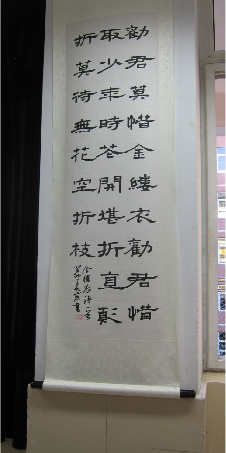 勸君莫惜金縷衣勸君惜
取少年時花開堪折直須
折莫待無花空折枝
金縷衣詩一首